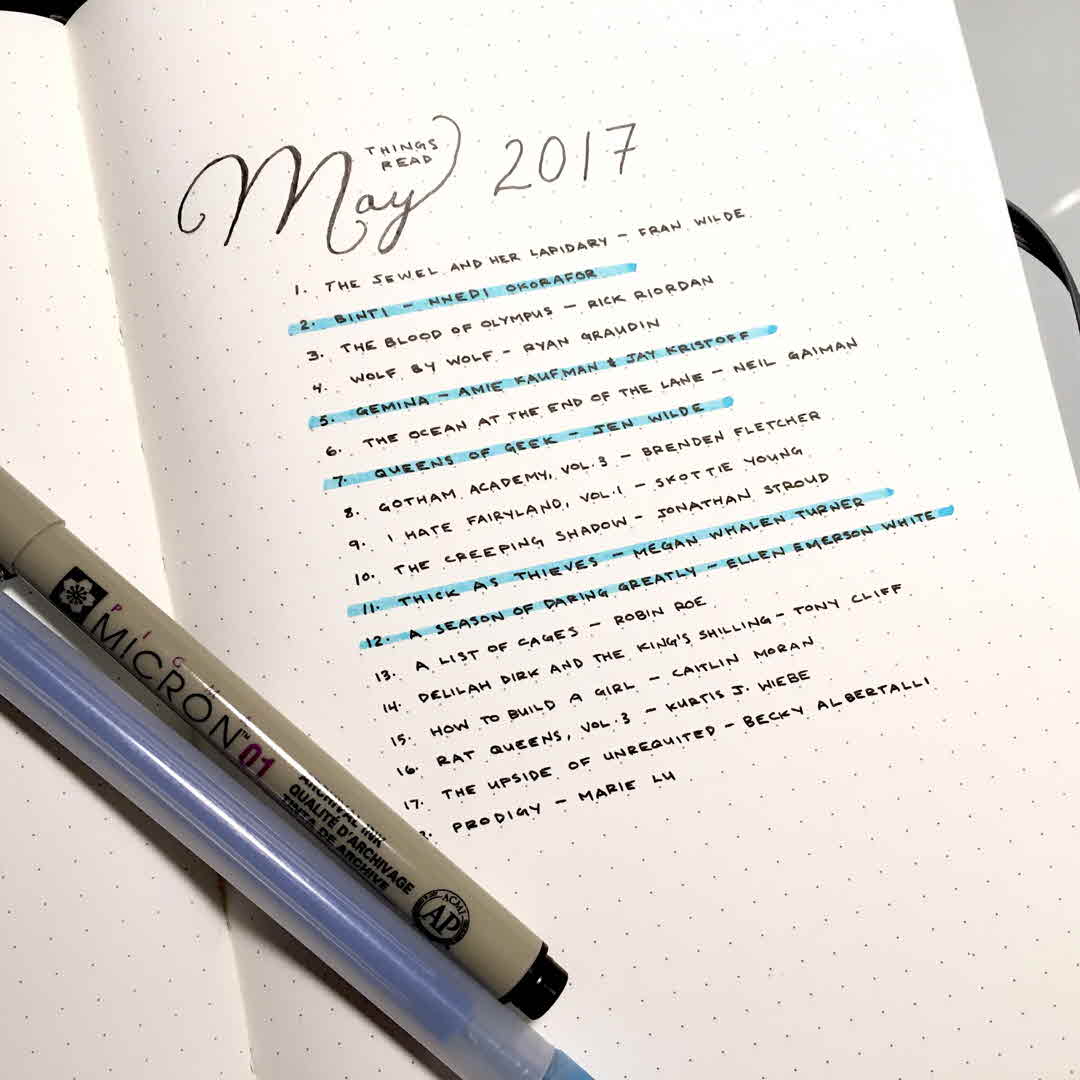 THINGS
READ
May 2017
1. THE JEWEL AND HER LAPIDARY – FRAN WILDE
2. BINTI – NNEDI OKORAFOR
3. THE BLOOD OF OLYMPUS – RICK RIORDAN
4. WOLF BY WOLF – RYAN GRAUDIN
5. GEMINA – AMIE KAUFMAN & JAY KRISTOFF
6. THE OCEAN AT THE END OF THE LANE – NEIL GAIMAN
7. QUEENS OF GEEK – JEN WILDE
8. GOTHAM ACADEMY, VOL. 3 – BRENDEN FLETCHER
9. I HATE FAIRYLAND, VOL. 1 – SKOTTIE YOUNG
10. THE CREEPING SHADOW – JONATHAN STROUD
11. THICK AS THIEVES – MEGAN WHALEN TURNER
12. A SEASON OF DARING GREATLY – ELLEN EMERSON WHITE
13. A LIST OF CAGES – ROBIN ROE
14. DELILAH DIRK AND THE KING'S SHILLING – TONY CLIFF
15. HOW TO BUILD A GIRL – CAITLIN MORAN
16. RAT QUEENS, VOL. 3 – KURTIS J. WIEBE
17. THE UPSIDE OF UNREQUITED – BECKY ALBERTALLI
PRODIGY – MARIE LU
PIGMA
MICRON™ 01
ARCHIVAL INK
QUALITÉ D'ARCHIVAGE
TINTA DE ARCHIVE
ACMI
AP